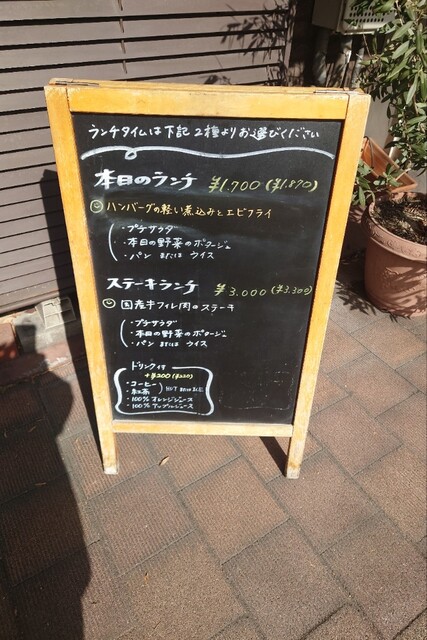 ランチタイムは下記2種よりお選びください
本日のランチ ¥1,700(¥1,870)
ハンバーグの軽い煮込みとエビフライ
・プチサラダ
・本日の野菜のポタージュ
・パン または ライス
ステーキランチ ¥3,000(¥3,300)
国産牛フィレ肉のステーキ
・プチサラダ
・本日の野菜のポタージュ
・パン または ライス
ドリンク付
+¥200(¥220)
・コーヒー
・紅茶 HOT または ICE
・100%オレンジジュース
・100%アップルジュース